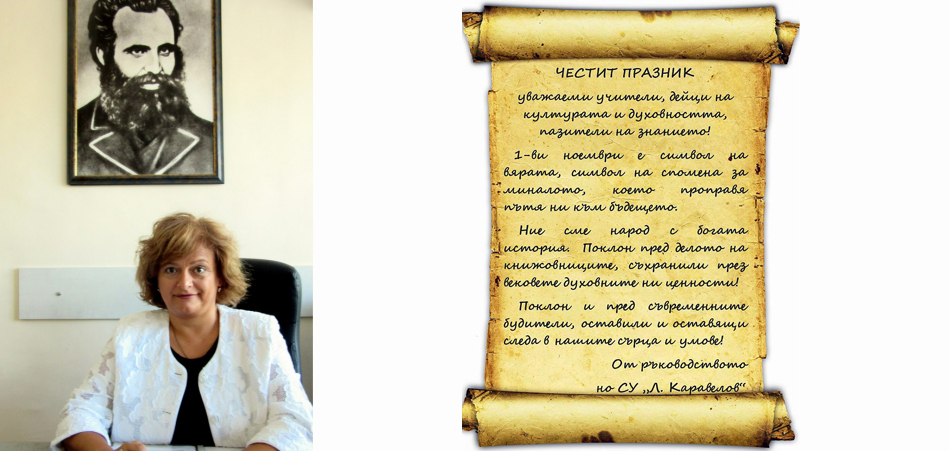 ЧЕСТИТ ПРАЗНИК
уважаеми учители, дейци на
културата и духовността,
пазители на знанието!
1-ви ноември е символ на
вярата, символ на спомена за
миналото, което проправя
пътя ни към бъдещето.
Ние сме народ с богата
история. Поклон пред делото на
книжовниците, съхранили през
вековете духовните ни ценности!
Поклон и пред съвременните
будители, оставили и оставящи
следа в нашите сърца и умове!
От ръководството
но СУ „Л. Каравелов“